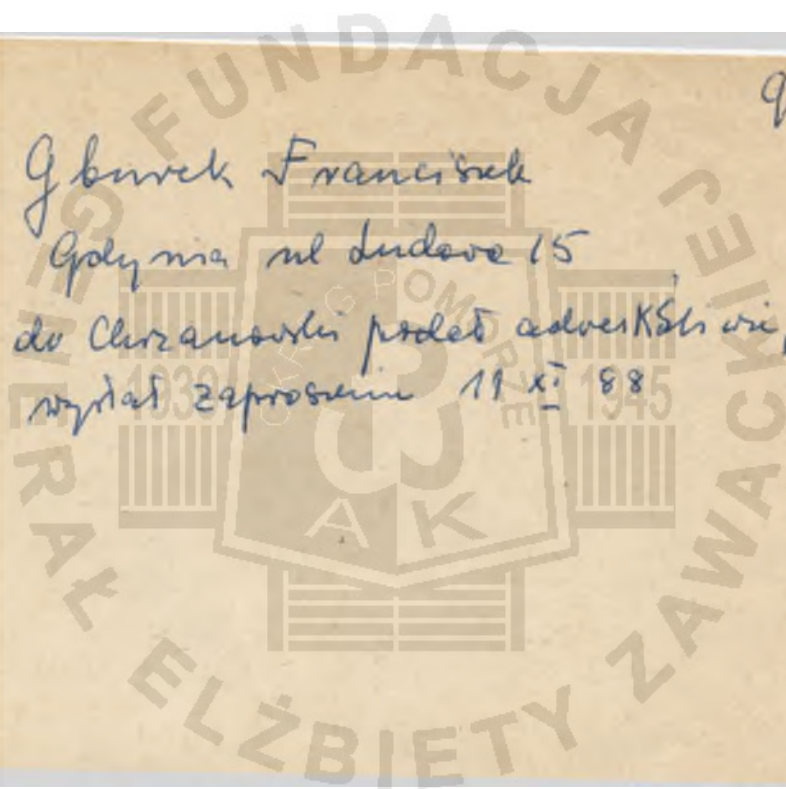 Gburek Franciszek
Gdynia ul Ludowa 15
do Chrzanowski podał adres
wysłał zaproszenie 11 XI 88
FUNDACJA
GENERAŁ ELŻBIETY ZAWACKIEJ
OKRĘG POMORZE
1939 1945
AK